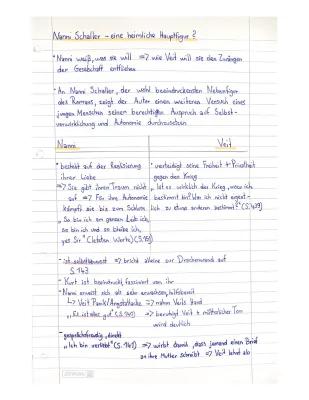 Nanni Schaller - eine heimliche Hauptfigur?
• Nanni weiß, was sie will => wie Veit will sie den Zwängen
der Gesellschaft entfliehen
• An Nanni Schaller, der wohl beeindruckendsten Nebenfigur
des Romans, zeigt der Autor einen weiteren Versuch eines
jungen Menschen seinen berechtigten Anspruch auf Selbst-
verwirklichung und Autonomie durchzusetzen
Nanni
Veit
• besteht auf der Realisierung
ihrer Liebe
=> Sie gibt ihren Traum nicht
auf => Für ihre Autonomie
kämpft sie bis zum Schluss
„So bin ich am ganzen Leib ich,
so bin ich und so bleibe ich,
yes Sir" (letzten Worte)
• verteidigt seine Freiheit + Privatheit
gegen den Krieg
„Ist es wirklich der Krieg, was ich
bestimmt bin? Bin ich nicht eigent-
lich zu etwas anderem bestimmt?"
• ist selbstbewusst => bricht alleine zur Drachenwand auf
S. 143
• Kurt ist beeindruckt, fasziniert von ihr
• Nanni erweist sich als sehr erwachsen, hilfsbereit
↳ Veit Panik/Angstattacke => nahm Veits Hand
=> beruhigt Veit + mütterlicher Ton
wird deutlich
- gesprächsfreudig, direkt
„Ich bin verliebt" (S. 141) => wirbt damit, dass jemand einen Brief
an ihre Mutter schreibt => Veit lehnt ab